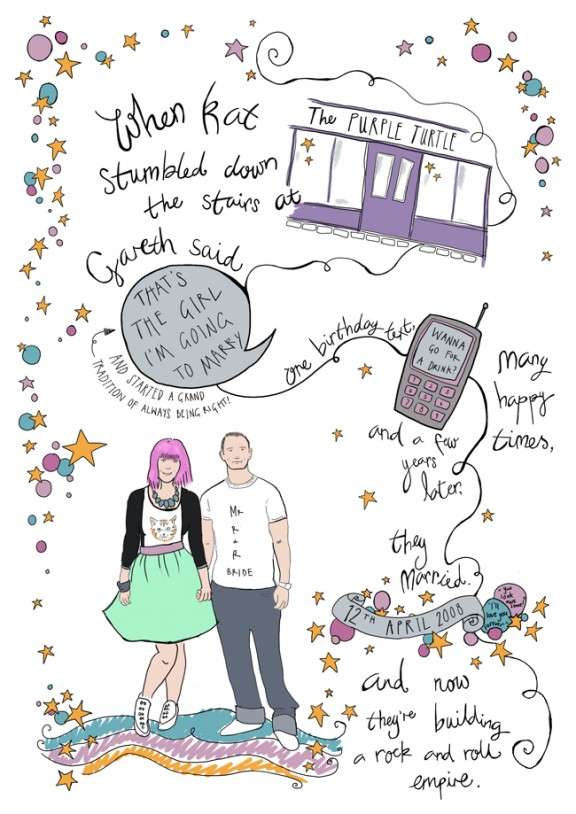 When Kat
The PURPLE TURTLE
stumbled down
the stairs at
Gareth said
THAT'S
THE GIRL
I'M GOING
TO MARRY
AND STARTED A GRAND
TRADITION OF ALWAYS BEING RIGHT!
one birthday text,
WANNA
GO FOR
A DRINK?
many
happy
times,
and a few
years
later,
they
married.
12TH APRIL 2008
You
look
I'll
love you
forever
MR
R + R
BRIDE
and now
they're building
a rock and roll
empire.